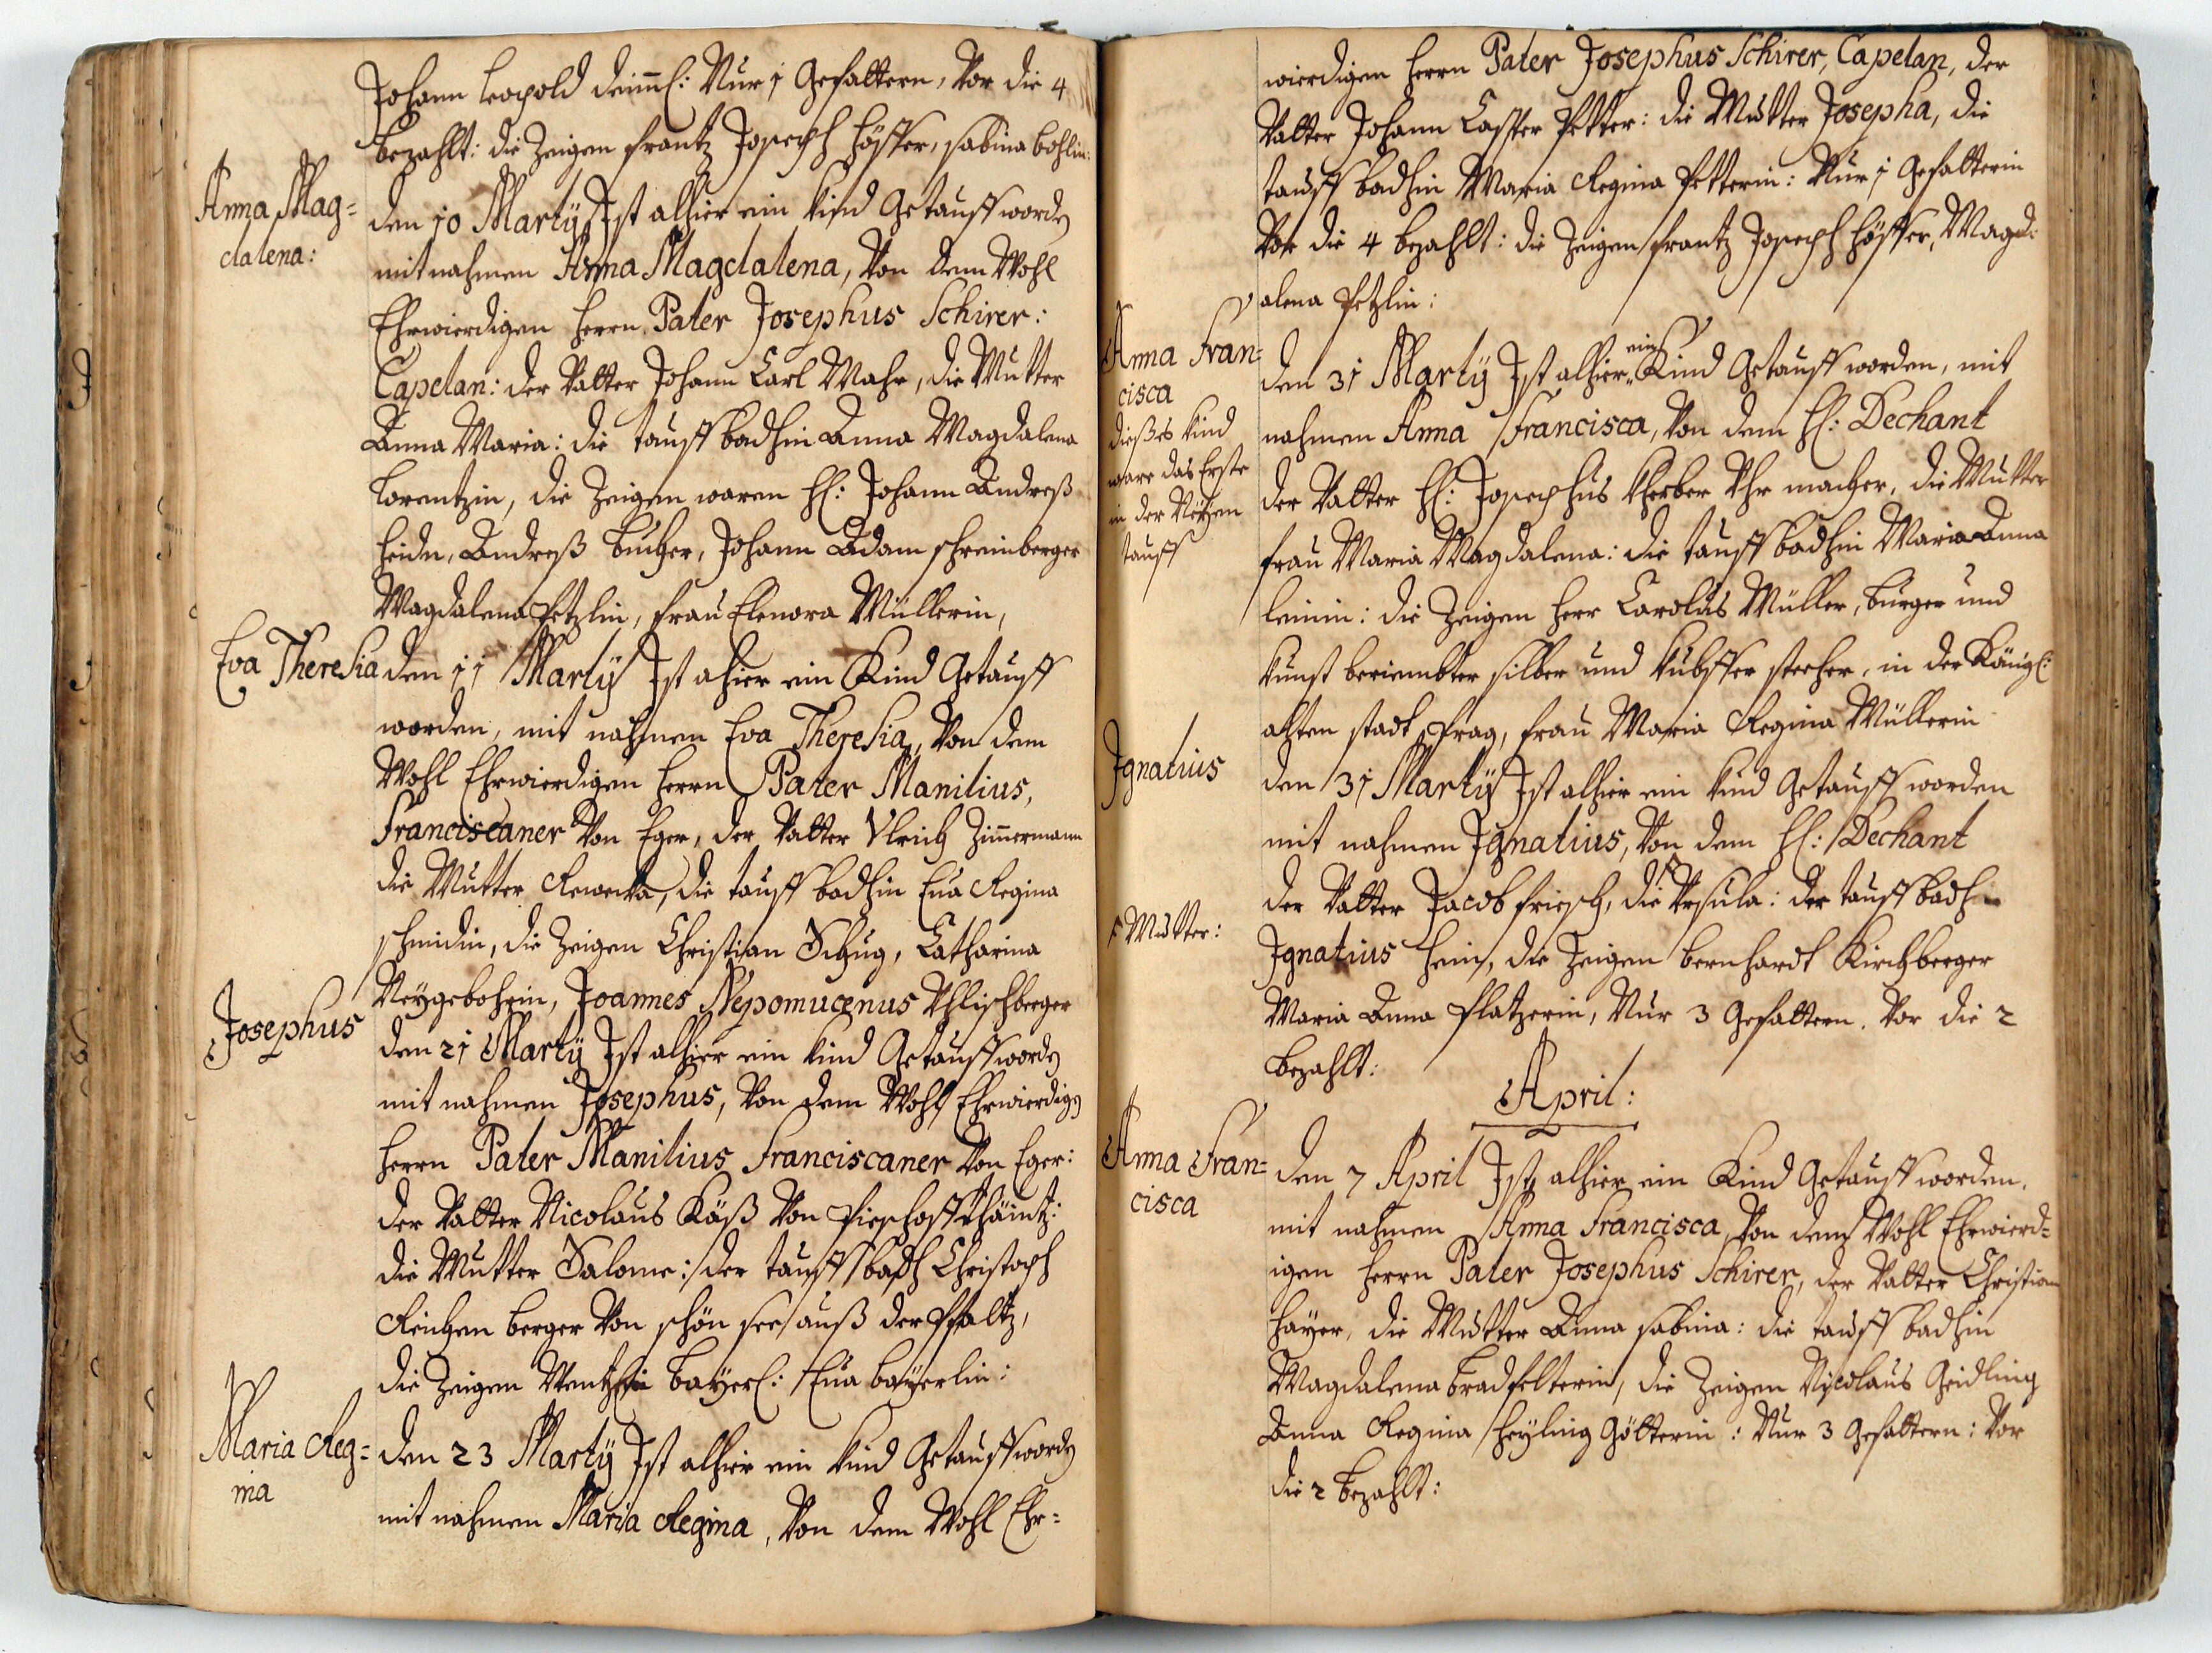 Johann Leopold Deimel: Nur 1 Gefattern, Vor die 4
bezahlt: die Zeigen Frantz Joseph Höffer, Sabina Bohlin:
Anna Mag=
dalena:
den 10 Marty Ist alhier ein Kind Getaufft worden
mit nahmen Anna Magdalena, Von dem Wohl
Ehrwierdigen Herrn Pater Josephus Schirer:
Capelan: der Vatter Johann Carl Mahr, die Mutter
Anna Maria: die tauff badhin Anna Magdalena
Lorentzin, die Zeigen waren H: Johann Andreß
Heidn, Andreß Bucher, Johann Adam Schreinberger
Magdalena Petzlin, Frau Elenora Müllerin,
Eva Theresia
den 11 Marty Ist ahier ein Kind Getauff
worden, mit nahmen Eva Theresia, Von dem
Wohl Ehrwierdigen Herrn Pater Manilius,
Franciscaner Von Eger, der Vatter Vlrich Zimmermann
die Mutter, die tauff badhin Eua Regina
Schmidin, die Zeigen Christian Schug, Catharina
Neÿgebohrin, Joannes Nepomucenus Uhlischberger
Josephus
den 21 Marty Ist alhier ein Kind Getauff worden
mit nahmen Josephus, Von dem Wohl Ehrwierdigen
Herrn Pater Manilius Franciscaner Von Eger:
der Vatter Nicolaus Käß Von
die Mutter Salome: der tauff badh Christoph
Reichen berger Von Schön see auß der Pfaltz,
die Zeigen Bayerl: Eua Baÿerlin:
Maria Reg=
ina
den 23 Marty Ist alhier ein Kind Getauff worden
mit nahmen Maria Regina, Von dem Wohl Ehr=
wierdigen Herrn Pater Josephus Schirer, Capelan, der
Vatter Johann Casper Petter: die Mutter Josepha, die
tauff badhin Maria Regina Petterin: Nur 1 Gefatterin
Vor die 4 bezahlt: die Zeigen Frantz Joseph Höffer, Magd:
alena Petzlin:
Anna Fran=
cisca
dießes Kind
ware das Erste
in der Neÿen
tauff
den 31 Marty Ist alhier ein Kind Getauff worden, mit
nahmen Anna Francisca, Von dem H: Dechant
der Vatter H: Josephus Kherber Uhr macher, die Mutter
Frau Maria Magdalena: die tauff badhin Maria Anna
: die Zeigen Herr Carolus Müller, Burger und
Kunst beriembter silber und Kubffer stecher, in der Königl:
alten stadt Prag, Frau Maria Regina Müllerin
Ignatius
den 31 Marty Ist alhier ein Kind Getauff worden
mit nahmen Ignatius, Von dem H: Dechant
der Vatter Jacob Friesch, die Ursula: der tauff badh
Mutter:
Ignatius Hein, die Zeigen Bernhardt Kirchberger
Maria Anna Platzerin, Nur 3 Gefattern. Vor die 2
bezahlt:
April:
Anna Fran=
cisca
den 7 April Ist alhier ein Kind Getauff worden.
mit nahmen Anna Francisca, Von dem Wohl Ehrwierd=
igen Herrn Pater Josephus Schirer, der Vatter Christian
Hayer, die Mutter Anna Sabina: die tauff badhin
Magdalena Bradfelterin, die Zeigen Nicolaus Geidling
Anna Regina Heyling Götterin: Nur 3 Gefattern: Vor
die 2 bezahlt: